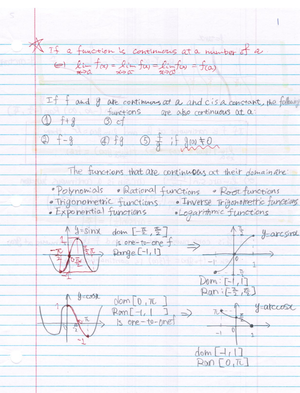 1
If a function is continuous at a number of a
⇔ lim x→a⁻ f(x) = lim x→a⁺ f(x) = lim x→a f(x) = f(a)
If f and g are continuous at a and c is a constant, the following
functions are also continuous at a:
① f+g ③ cf
② f-g ④ fg ⑤ f/g if g(a) ≠ 0
The functions that are continuous at their domain are
• Polynomials • Rational functions • Root functions
• Trigonometric functions • Inverse Trigonometric functions
• Exponential functions • Logarithmic functions
y=sinx dom [-π/2, π/2] y=arcsinx
is one-to-one f ⇒
Range [-1, 1]
Dom: [-1, 1]
Ran: [-π/2, π/2]
y=cosx dom [0, π] ⇒ y=arccosx
Ran [-1, 1]
is one-to-one f
dom [-1, 1]
Ran [0, π]